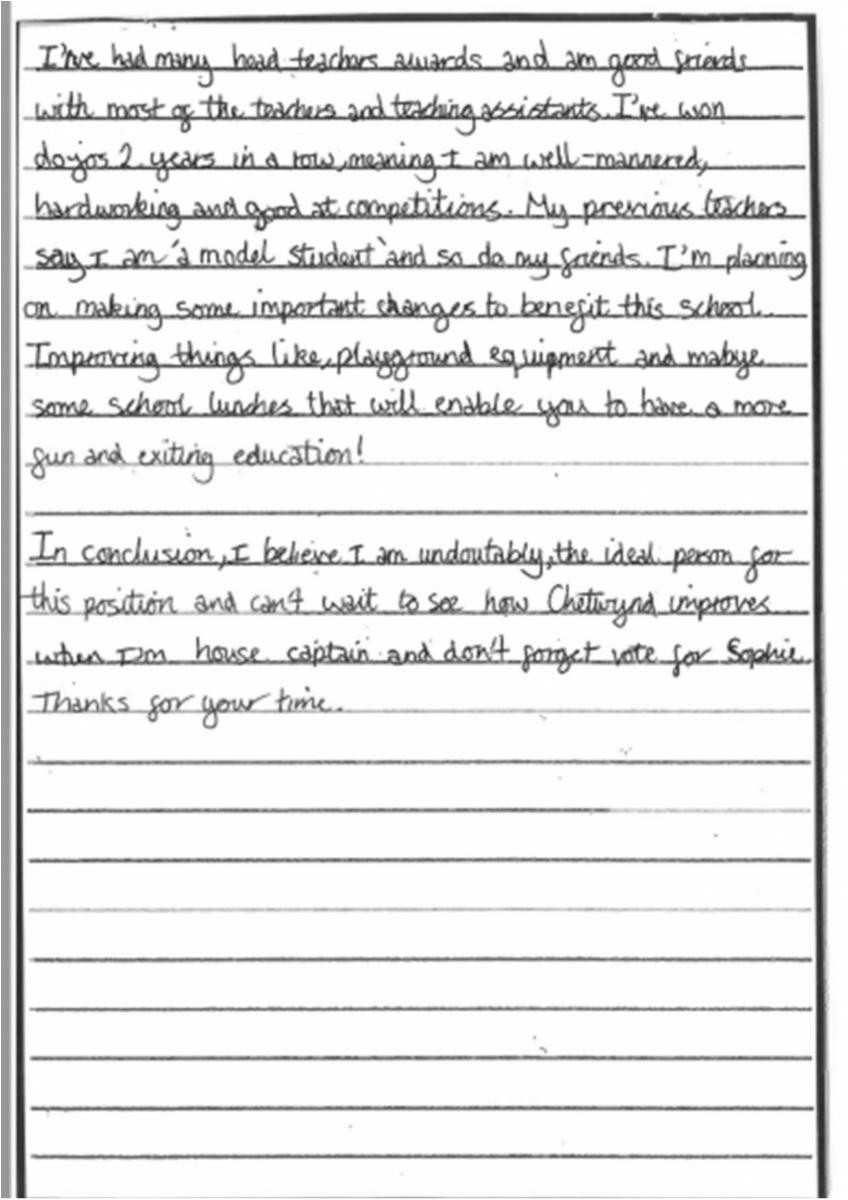 I've had many head teachers awards and am good friends
with most of the teachers and teaching assistants. I've won
dojos 2 years in a row, meaning I am well-mannered,
hardworking and good at competitions. My previous teachers
say I am 'a model student' and so do my friends. I'm planning
on making some important changes to benefit this school.
Improving things like, playground equipment and mabye
some school lunches that will enable you to have a more
fun and exiting education!
In conclusion, I believe I am undoutably, the ideal person for
this position and can't wait to see how Chetwynd improves
when I'm house captain and don't forget vote for Sophie.
Thanks for your time.